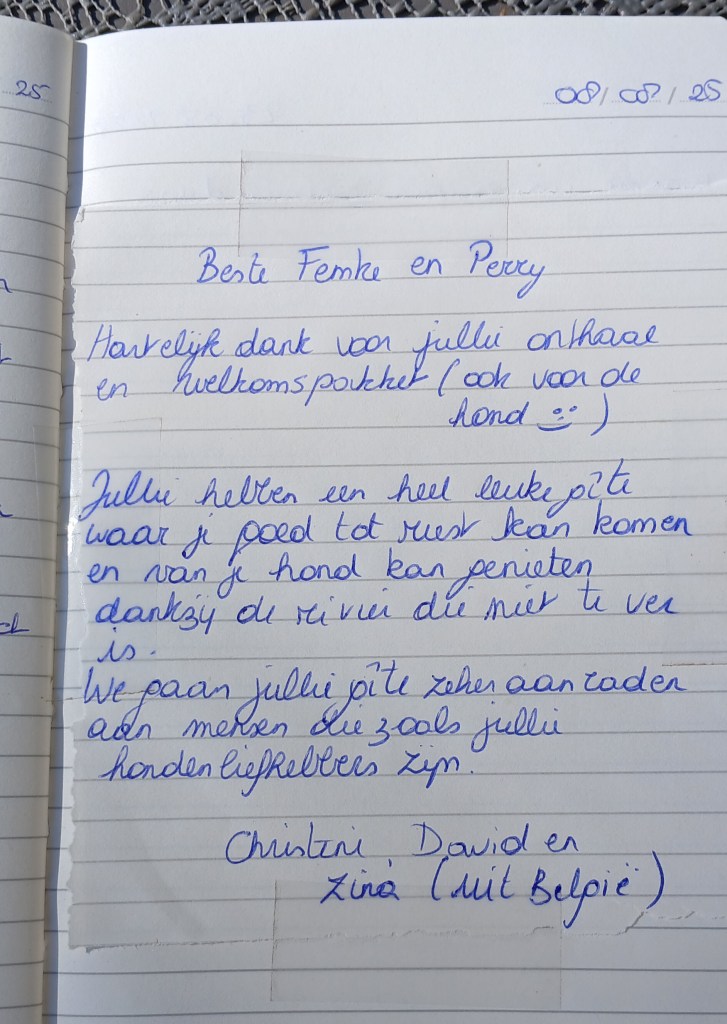 25
08/08/25
Beste Femke en Perry
Hartelijk dank voor jullie onthaal
en welkomspakket (ook voor de
hond)
Jullie hebben een heel leuke gîte
waar je goed tot rust kan komen
en van je hond kan genieten
dankzij de rivier die niet te ver
is.
We gaan jullie gîte zeker aanraden
aan mensen die zoals jullie
hondenliefhebbers zijn.
Christine, David en
Zina (uit België)